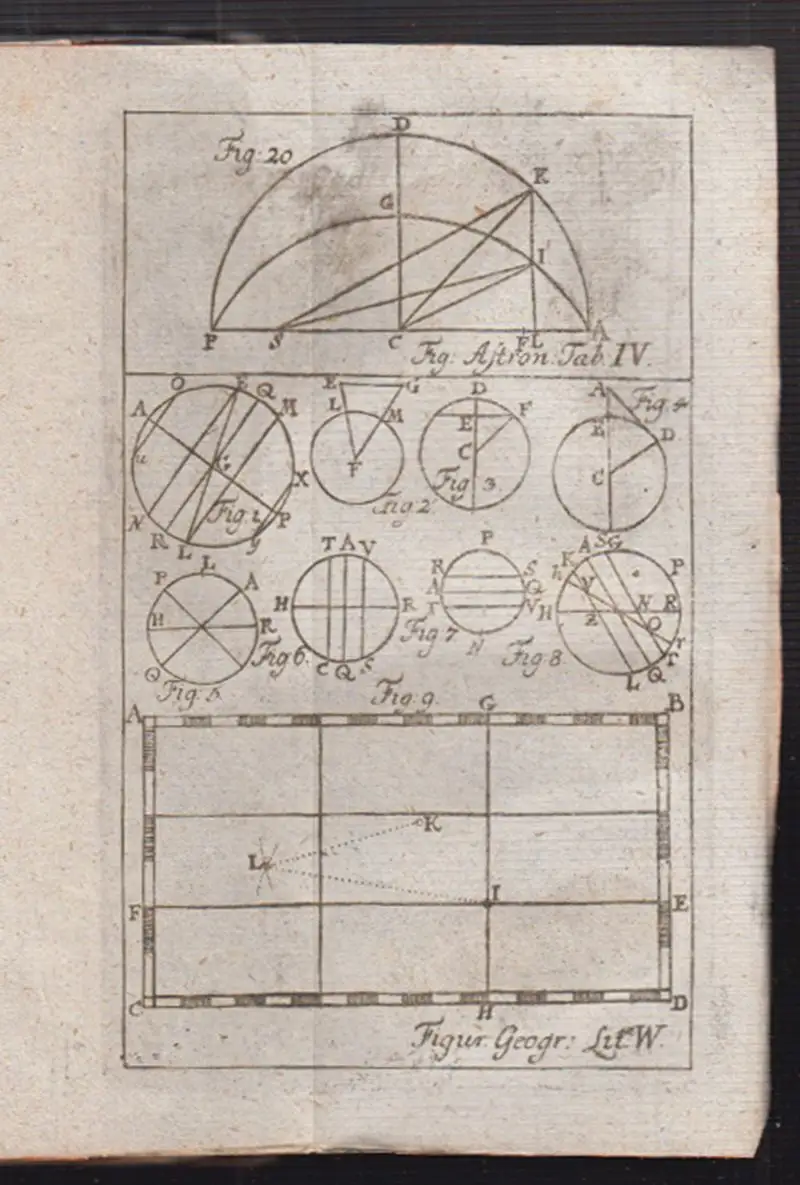 D
Fig. 20
K
G
I
P S C F L A
Fig. Astron. Tab. IV.
O E Q M
A
u
G
X
P
N
R L y
Fig. 1.
E G
L M
F
Fig. 2
D
E F
C
Fig. 3.
A
Fig. 4
E D
C
S
L
P A
H R
Q
Fig. 5.
T A V
H R
C Q S
Fig. 6.
P
R S
A Q
T V
N
Fig. 7
A S G
K
h
V
P
H Z N R
O
r
T
L Q
Fig. 8.
Fig. 9.
A G B
K
L
I
F E
C H D
Figur. Geogr: Litt. W.